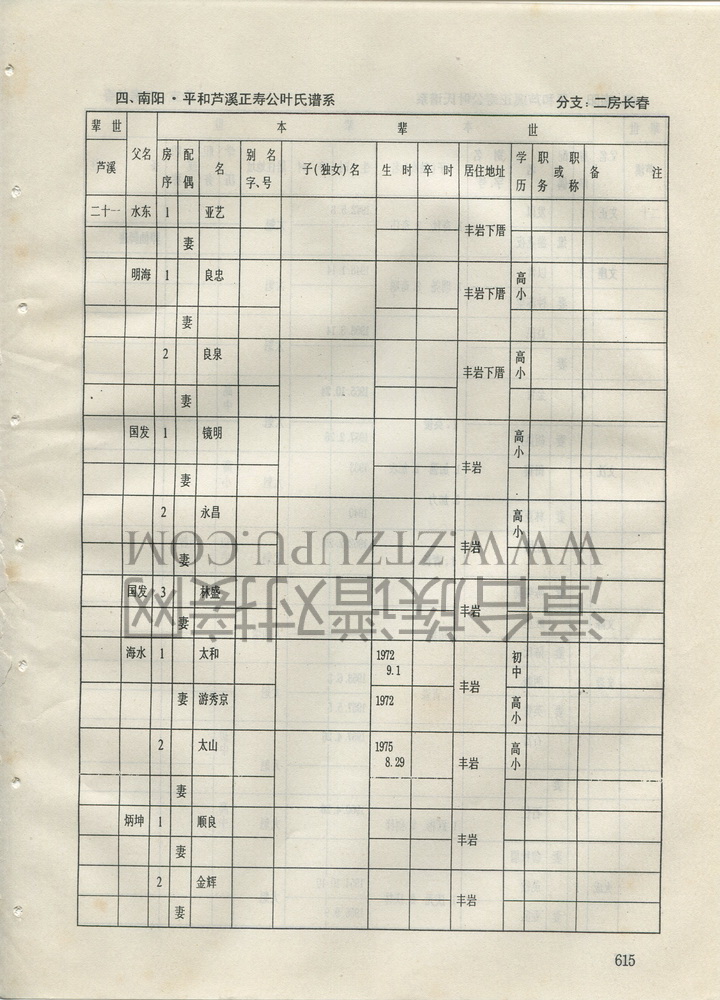 四、南阳·平和芦溪正寿公叶氏谱系 分支：二房长春
辈世 本 辈 世
芦溪 父名 房序 配偶 名 别名字、号 子(独女)名 生时 卒时 居住地址 学历 职务或职称 备注
二十一 水东 1 亚艺 丰岩下厝
妻
明海 1 良忠 丰岩下厝 高小
妻
2 良泉 丰岩下厝 高小
妻
国发 1 镜明 丰岩 高小
妻
2 永昌 丰岩 高小
妻
国发 3 林盛 丰岩
妻
海水 1 太和 1972 9.1 丰岩 初中
妻 游秀京 1972 高小
2 太山 1975 8.29 丰岩 高小
妻
炳坤 1 顺良 丰岩
妻
2 金辉 丰岩
妻
615
漳台族谱对接网
WWW.ZTZUPU.COM